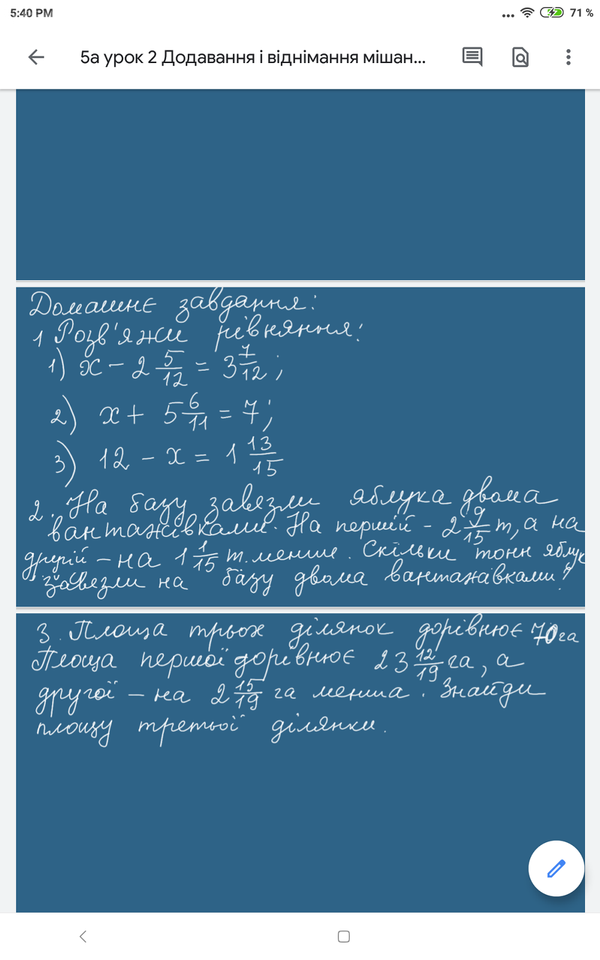 5:40 PM ... 71 %
5а урок 2 Додавання і віднімання мішан...
Домашнє завдання:
1 Розв'яжи рівняння:
1) x - 2 5/12 = 3 7/12;
2) x + 5 6/11 = 7;
3) 12 - x = 1 13/15
2. На базу завезли яблука двома
вантажівками. На першій - 2 9/15 т, а на
другій - на 1 1/15 т. менше. Скільки тонн яблук
завезли на базу двома вантажівками?
3. Площа трьох ділянок дорівнює 70 га
Площа першої дорівнює 23 12/19 га, а
другої - на 2 15/19 га менша. Знайди
площу третьої ділянки.